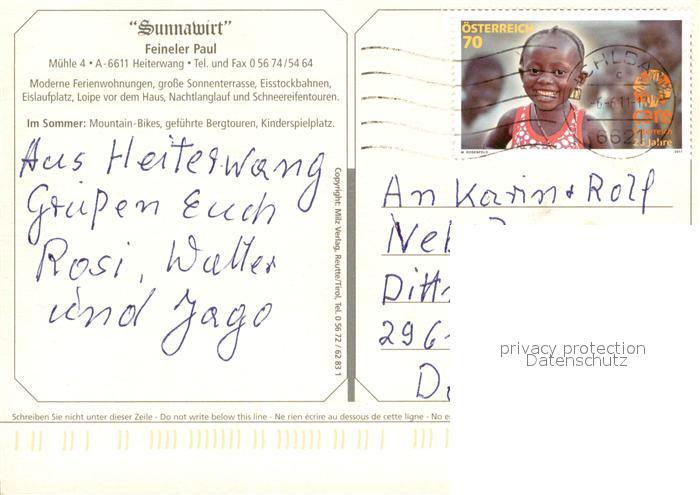 "Sunnawirt"
Feineler Paul
Mühle 4 • A - 6611 Heiterwang • Tel. und Fax 0 56 74 / 54 64
Moderne Ferienwohnungen, große Sonnenterrasse, Eisstockbahnen,
Eislaufplatz, Loipe vor dem Haus, Nachtlanglauf und Schneereifentouren.
Im Sommer: Mountain-Bikes, geführte Bergtouren, Kinderspielplatz.
Aus Heiterwang
Grüßen Euch
Rosi, Walter
und Jago
Copyright: Milz Verlag, Reutte/Tirol, Tel. 0 56 72 / 62 83 1
ÖSTERREICH
70
care
Österreich
25 Jahre
2011
An Karin + Rolf
Ditt
privacy protection
Datenschutz
Schreiben Sie nicht unter dieser Zeile - Do not write below this line - Ne rien écrire au dessous de cette ligne - No es